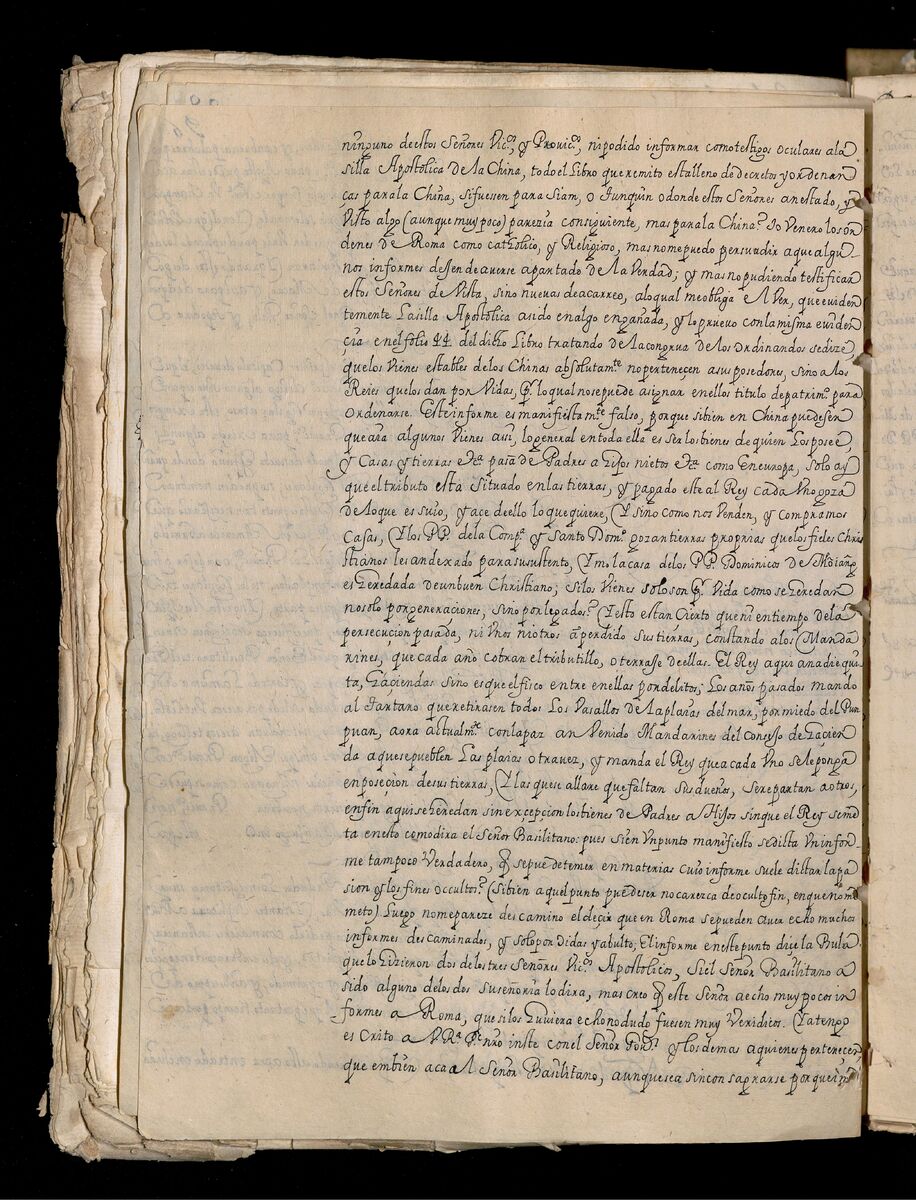 ninguno de estos Señores Vic.ºs, y Provic.ºs, ni podido informar como testigos oculares a la
silla Apostolica de la China, todo el Libro que remito esta lleno de decretos y ordenan
ças para la China, si fuessen para Siam, o Tunquin o donde estos Señores an estado, y
Visto algo (aunque muy poco) pareçia consiguiente, mas para la China? Io Venero los or
denes de Roma como catholico, y Religioso, mas no me puedo persuadir a que algu
nos informes dejen de averse apartado de la Verdad; y mas no pudiendo testificar
estos Señores de Vista, sino nuevas de acarreo, a lo qual me obliga el Ver, que eviden
temente la silla Apostolica a sido en algo engañada, y lo pruevo con la misma eviden
çia en el folio 44 del dicho Libro tratando de la congrua de los Ordinandos se dize,
que los Vienes estables de los Chinas absolutam.te no perteneçen a sus posedores, sino a los
Reies que los dan por Vidas, P. lo qual no se puede asignar en ellos titulo de patrim.º para
Ordenarse. Este informe es manifiestam.te falso, porque si bien en China puede ser
que aia algunos Vienes assi, lo general en toda ella es ser los bienes de quien los posee,
y Casas y tierras etc.ª pasã de Padres a hijos nietos etc.ª como en europa, solo ay
que el tributo esta situado en las tierras, y pagado este al Rey cada Uno goza
de lo que es suio, y ace de ello lo que quiere, (Y sino como nos Venden, y compramos
Casas, (Y los PP. de la Comp.ª y Santo Dom.º gozan tierras proprias que los fieles Chris
tianos les an dexado para su sustento, (Y mo la casa de los PP. Dominicos de
es heredada de un buen Christiano; si los Vienes solo son P. Vida como se heredan
no solo por generaçiones, sino por legados? (Y esto es tan Cierto que ni en tiempo de la
perseçuçion pasada, ni Unos ni otros ã perdido sus tierras, constando a los Manda
rines, que cada año cobran el tributillo, o terrasse de ellas. El Rey aqui a nadie qui
ta, haçiendas sino es que el fisco entre en ellas por delitos; Los años pasados mando
al Tartaro que retirasen todos Los Vasallos de la plaias del mar, por miedo del Pun
puan, aora actualm.te con la paz an Venido Mandarines del consejo de haçien
da a que se pueblen Las plaias otra vez, y manda el Rey que a cada Uno se le ponga
en poseçion de sus tierras, (Y las que se allare que faltan sus dueños, se repartan a otros,
enfin aqui se heredan sin exçepçion los bienes de Padres a Hijos sin que el Rey se me
ta en esto como dira el Señor Basilitano: pues si en Un punto manifiesto se dicta Un infor
me tampoco Verdadero, q se puede temer en materias cuio informe suele dictar la pa
sion y los fines occultos? (Si bien aquel punto puede ser no carezca de oculto fin, en que no me
meto) Luego no me pareze descamino el deçir que en Roma se pueden aver echo muchos
informes descaminados, y solo por oidas y a bulto; El informe en este punto dice la Bula
que lo hizieron dos de los tres Señores Vic.ºs Apostolicos, si el Señor Basilitano a
sido alguno de los dos su señoria lo dira, mas creo q este Señor a echo muy pocos in
formes a Roma, que si los huviera echo no dudo fuesen muy Veridicos. (Ya tengo
escrito a V. R.ª P. nro inste con el Señor Gov.or y los demas a quienes pertenecer,
que embien aca al Señor Basilitano, aunque sea sin consagrarse porque